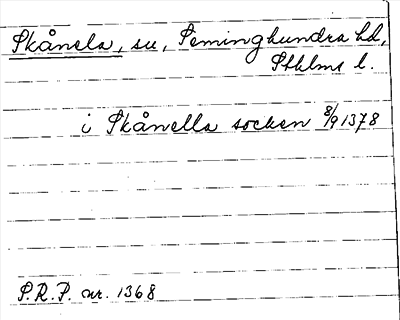 Skånela, sn, Seminghundra hd,
Sthlms l.
i Skånella socken 8/9 1378
S.R.P. nr. 1368